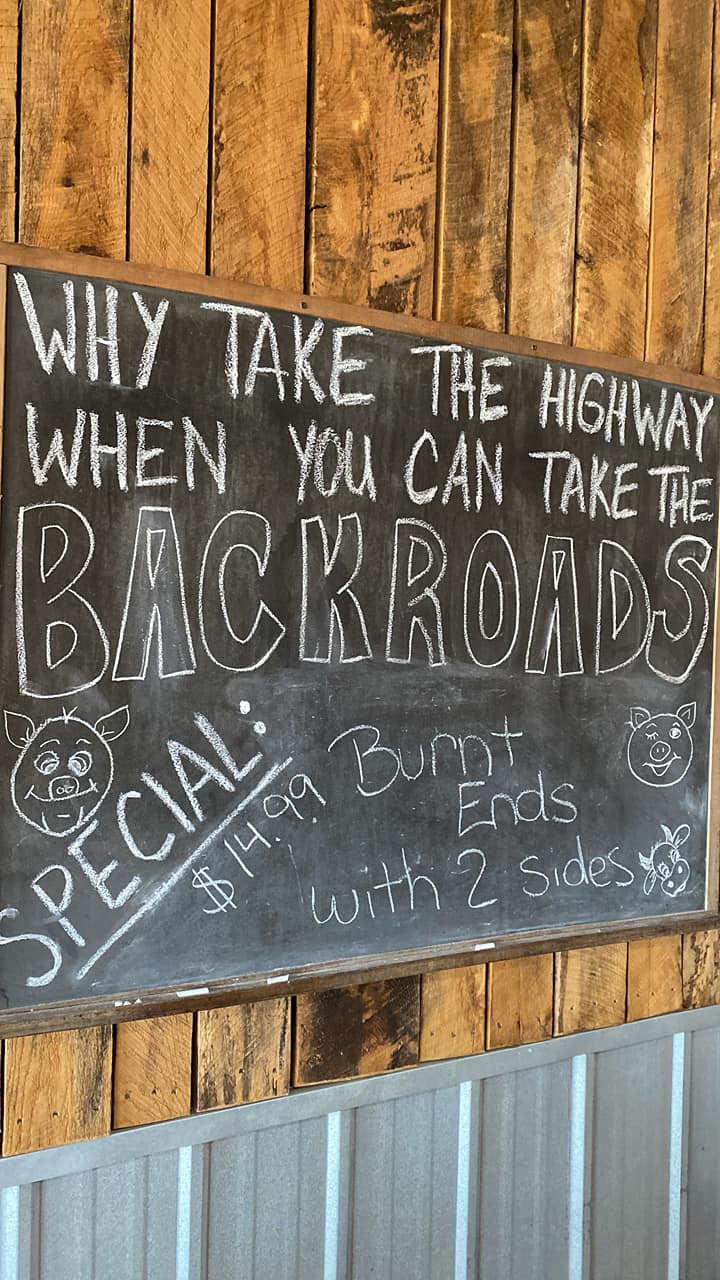 WHY TAKE THE HIGHWAY
WHEN YOU CAN TAKE THE
BACKROADS
SPECIAL:
$14.99
Burnt
Ends
with 2 sides